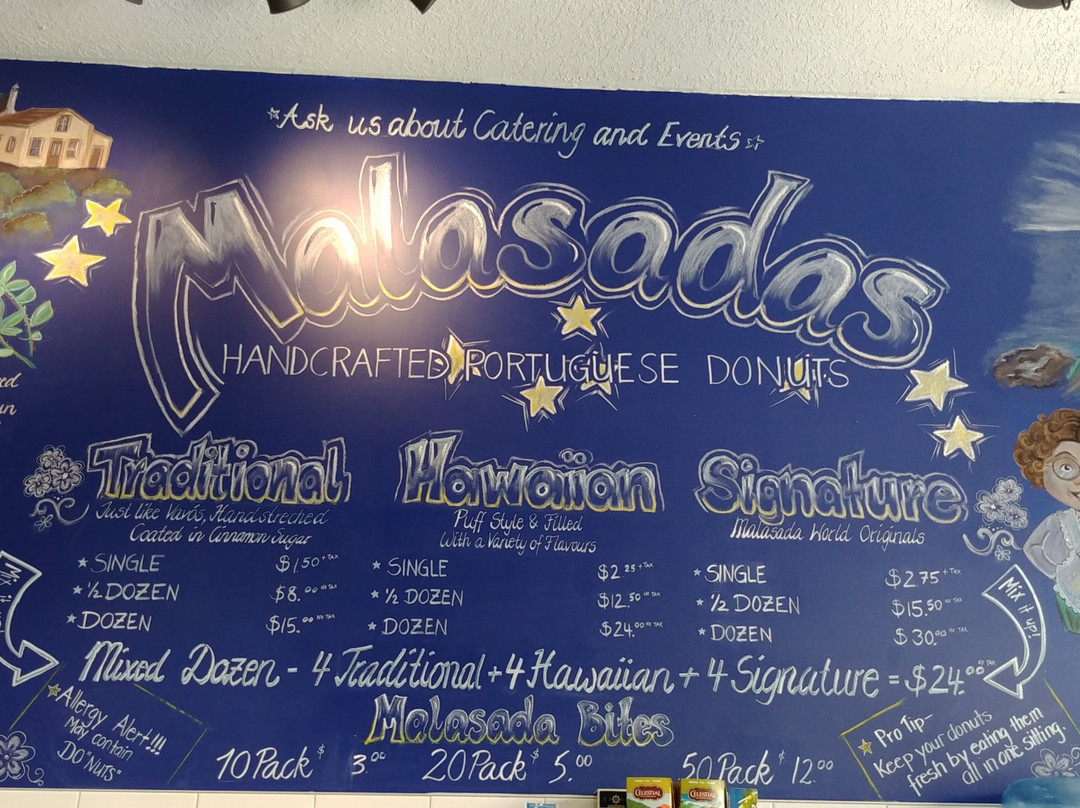 Ask us about Catering and Events
Malasadas
HANDCRAFTED PORTUGUESE DONUTS
Traditional
Just like Vavós, Hand streched
Coated in Cinnamon Sugar
SINGLE $1.50 + TAX
1/2 DOZEN $8.00 NO TAX
DOZEN $15.00 NO TAX
Hawaiian
Puff Style & Filled
With a Variety of Flavours
SINGLE $2.25 + TAX
1/2 DOZEN $12.50 NO TAX
DOZEN $24.00 NO TAX
Signature
Malasada World Originals
SINGLE $2.75 + TAX
1/2 DOZEN $15.50 NO TAX
DOZEN $30.00 NO TAX
Mix it up!
Mixed Dozen - 4 Traditional + 4 Hawaiian + 4 Signature = $24.00 NO TAX
Mix it up!
Malasada Bites
10 Pack $3.00 20 Pack $5.00 50 Pack $12.00
Allergy Alert!!!
May contain
DO"Nuts"
Pro Tip-
Keep your donuts
fresh by eating them
all in one sitting
CELESTIAL CELESTIAL